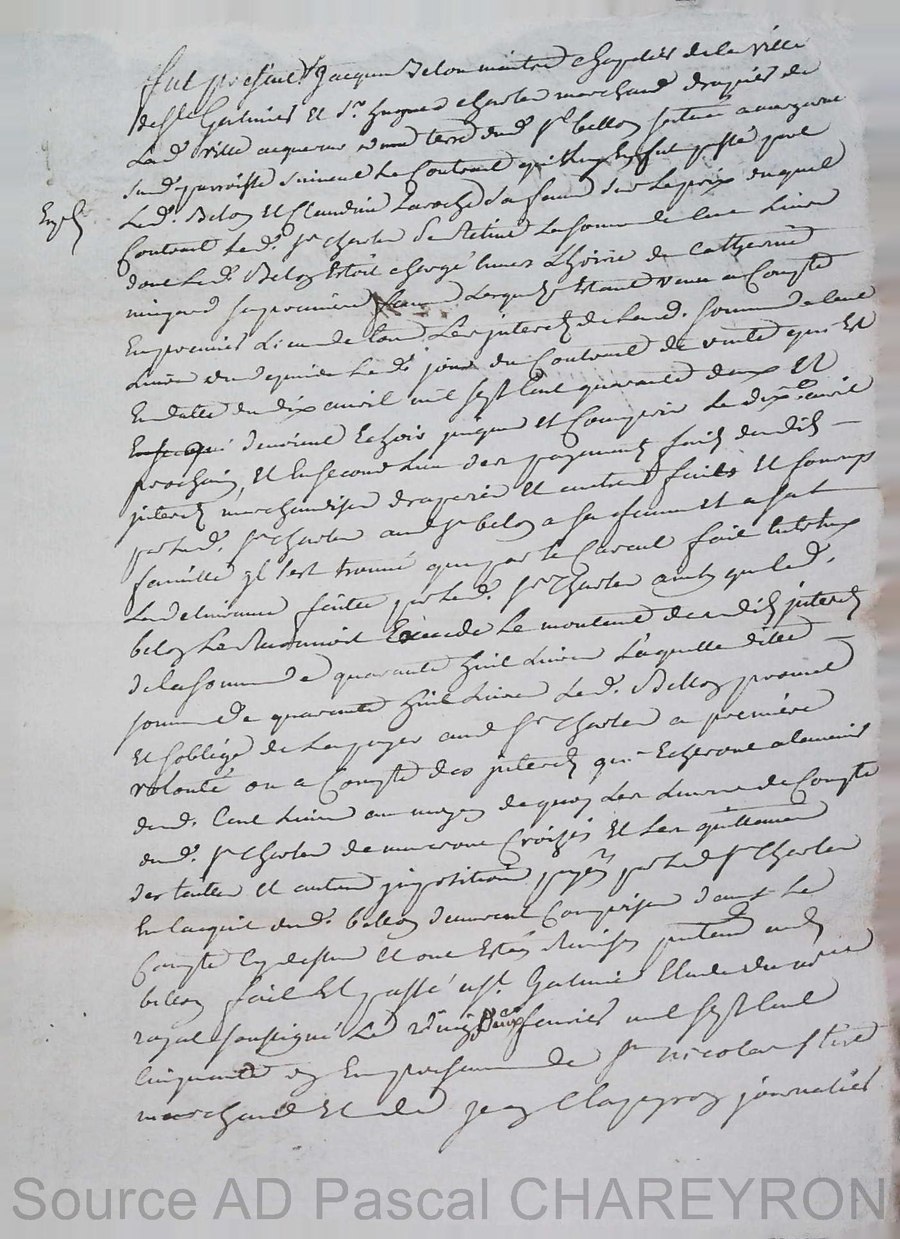 fut présent Sr Jacques Belon maitre chapelier de la ville
de St Gertinier Et Sr hugues charlon marchand drapier de
Lad. ville acquereur terre dud. Sr bellon située
sud. parroisse suivent Le Contract qui Leur En fut passé par
Exp.
Led. Belon Et Claudine Laroche sa fame sur Le prix duquel
Contract Led. Sr charlon Se Retint La somme de Cent Livres
dont Led. Belon Etoit chargé Envers L'hoirie de Catherine
mingard sa première fame Lesquels Etant venu a Compte
En premier Lieu de tous Les interets de Lad. somme de Cent
Livres du depuis Le d. jour du Contract de vente qui Est
En datte du dix avril mil sept Cent quarante deux Et
qui devoient Echoir jusques Et Compris Le dix avril
prochain, Et En second Lieu des payements faits desdits
interets marchandises draperie Et autres faits Et fournis
par Led. Sr charlon aud. Sr belon a sa fame Et a sa
famille il s'est trouvé que par Le Calcul fait Entr'eux
La delivrance faitte par Led. Sr charlon aud. que Led.
belon Excede Le montant desdits interets
de La somme de quarante huit Livres Laquelle ditte
somme de quarante huit Livres Led. Bellon promet
Et s'oblige de La payer aud. Sr charlon a première
volonté ou a Compte des interets qui Echeront a Lavenir
desd. Cent Livres au moyen de quoy Les Livres de Compte
dud. Sr charlon demeurent Croisés Et Les quittances
des tailles Et autres impositions payés par Led. Sr charlon
En Lacquit dud. bellon demeurent Comprises dans Le
Compte Cy dessus Et ont Estés Remises audit
bellon fait Et passé a St. Etude du notaire
royal soussigné Le vingt deux fevrier mil sept Cent
Cinquante En presence de Sr nicolas
marchand Et de jean Clapeyron journalier
Source AD Pascal CHAREYRON